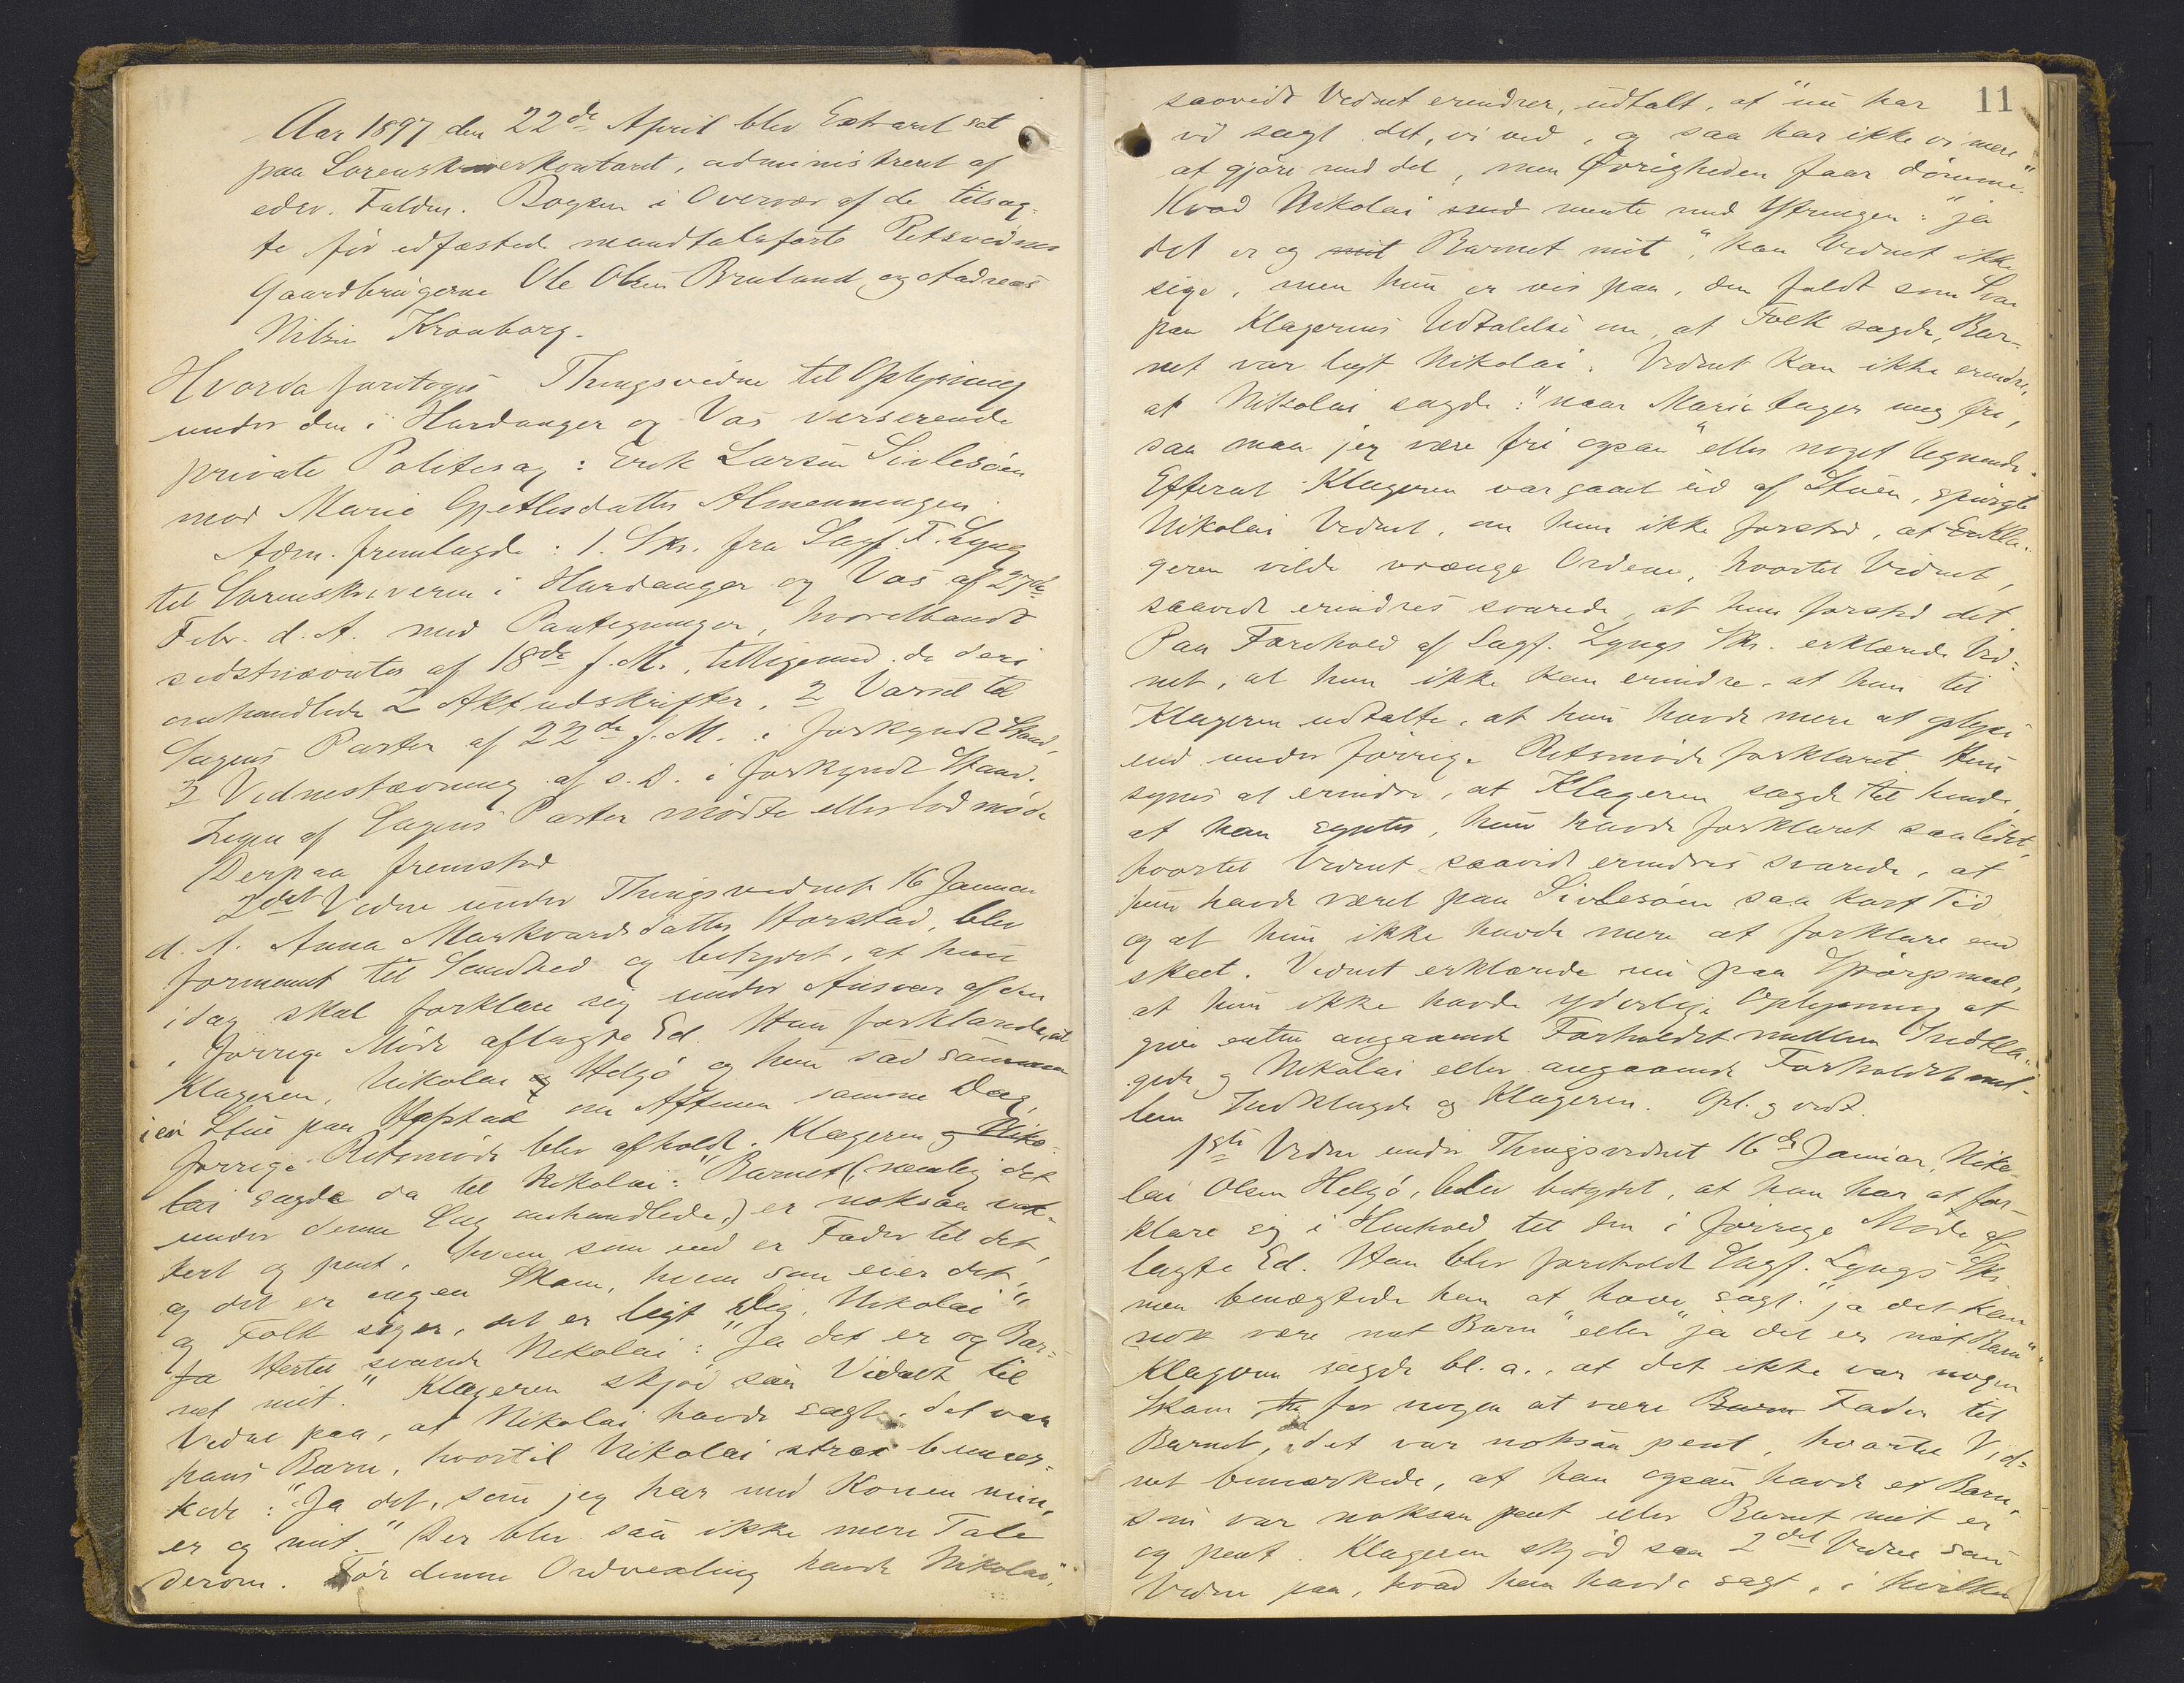 Aar 1897 den 22de April blev Extraret sat
paa Sorenskriverkontoret, administreret af
edsv. Fuldm. Boysen i Overvær af de tilsag-
te før edfæstede mandtalsførte Retsvidner
Gaardbrugerne Ole Olsen Bruland og Andreas
Nilsen Kronborg.
Hvorda foretoges Thingsvidne til Oplysning
under den i Hardanger og Vos verserende
private Politisag: Erik Larsen Sivlesøen
mod Marie Gjetlesdatter Almenningen.
Adm. fremlagde: 1. Skr. fra Sagf. F. Lyng
til Sorenskriveren i Hardanger og Vos af 27de
Febr. d. A. med Paategninger, hvoriblandt
sidstnævnte af 18de f. M., tilligemed de deri
omhandlede 2 Aktudskrifter. 2 Varsel til
Sagens Parter af 22de f. M. i forkyndt Stand,
3 Vidnestævning af s. D. i forkyndt Stand.
Ingen af Sagens Parter mødte eller lod møde
Derpaa fremstod
2det Vidne under Thingsvidnet 16 Januar
d. A. Anna Markvardsdatter Horstad, blev
formanet til Sandhed og betydet, at hun
idag skal forklare sig under Ansvar af den
i forrige Møde aflagte Ed. Hun forklarede, at
Klageren, Nikolai og Helgø og hun sad sammen
i en Stue paa Horstad om Aftenen samme Dag,
forrige Retsmøde blev afholdt. Klageren og Niko-
lai sagde da til Nikolai: "Barnet (nemlig det
under denne Sag omhandlede,) er noksaa vak-
kert og pent, hvem som end er Fader til det,
og det er ingen Skam, hvem som eier det,"
og Folk siger, det er ligt Dig, Nikolai"
Ja Hertil svarede Nikolai: "Ja det er og Bar-
net mit." Klageren skjød saa Vidnet til
Vidne paa, at Nikolai havde sagt. det var
hans Barn, hvortil Nikolai strax bemær-
kede: "Ja det, som jeg har med Konen min,
er og mit." Der blev saa ikke mere Tale
derom. Før denne Ordvexling havde Nikolai,
11
saavidt Vidnet erindrer, udtalt, at "nu har
vi sagt det, vi ved, og saa har ikke vi mere
at gjøre med det, men Øvrigheden faar dømme."
Hvad Nikolai med mente med Ytringen: "ja
det er og mit Barnet mit", kan Vidnet ikke
sige, men hun er vis paa, den faldt som Svar
paa Klagerens Udtalelse om, at Folk sagde, Bar-
net var ligt Nikolai. Vidnet kan ikke erindre,
at Nikolai sagde: "naar Marie tager mig fri,
saa maa jeg være fri ogsaa" eller noget lignende.
Efterat Klageren var gaaet ud af Stuen, spurgte
Nikolai Vidnet, om hun ikke forstod, at Kla-
geren vilde vrænge Ordene, hvortil Vidnet,
saavidt erindres svarede, at hun forstod det.
Paa Forehold af Sagf. Lyngs Skr. erklærede Vid-
net, at hun ikke kan erindre, at hun til
Klageren udtalte, at hun havde mere at oplyse
end under forrige Retsmøde forklaret. Hun
synes at erindre, at Klageren sagde til hende,
at han syntes, hun havde forklaret saa lidet,
hvortil Vidnet saavidt erindres svarede, at
hun havde været paa Sivlesøen saa kort Tid,
og at hun ikke havde mere at forklare end
skeet. Vidnet erklærede nu paa Spørgsmaal,
at hun ikke havde yderlige Oplysning at
give enten angaaende Forholdet mellem Indkla-
gede og Nikolai eller angaaende Forholdet mel-
lem Indklagede og Klageren. Opl. og vedt.
1ste Vidne under Thingsvidnet 16de Januar, Niko-
lai Olsen Helgø, blev betydet, at han har at for-
klare sig i Henhold til den i forrige Møde af-
lagte Ed. Han blev foreholdt Sagf. Lyngs Skr.
men benægtede han at have sagt: "ja det kan
nok være mit Barn" eller "ja det er mit Barn".
Klageren sagde bl. a., at det ikke var nogen
Skam for nogen at være Barn Fader til
Barnet, det var noksaa pent, hvortil Vid-
net bemærkede, at han ogsaa havde et Barn,
som var noksaa pent eller Barnet mit er
og pent. Klageren skjød saa 2det Vidne som
Vidne paa, hvad han havde sagt, i hvilken